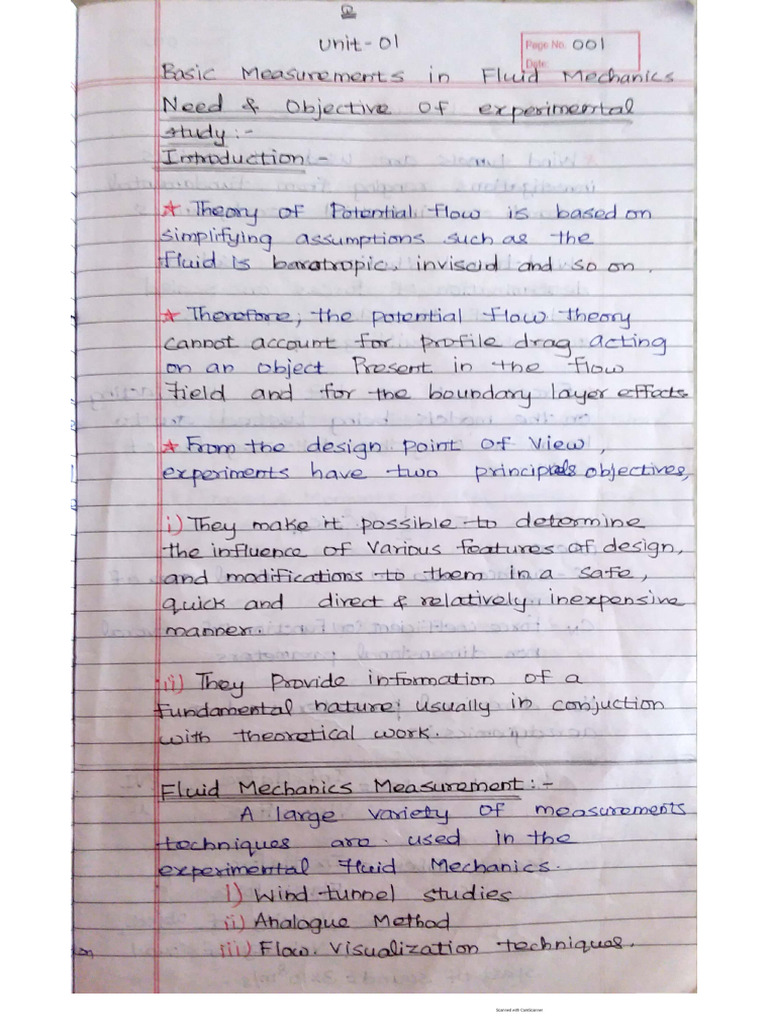 Unit-01
Page No. 001
Date
Basic Measurements in Fluid Mechanics
Need & Objective of experimental
study:-
Introduction:-
* Theory of Potential flow is based on
simplifying assumptions such as the
fluid is barotropic, inviscid and so on.
* Therefore, the potential flow theory
cannot account for profile drag acting
on an object Present in the flow
field and for the boundary layer effects
* From the design point of view,
experiments have two principals objectives,
i) They make it possible to determine
the influence of various features of design,
and modifications to them in a safe,
quick and direct & relatively inexpensive
manner.
ii) They Provide information of a
fundamental nature, usually in conjuction
with theoretical work.
Fluid Mechanics Measurement:-
A large variety of measurements
techniques are used in the
experimental Fluid Mechanics.
i) Wind-tunnel studies
ii) Analogue Method
iii) Flow. Visualization techniques.
Scanned with CamScanner